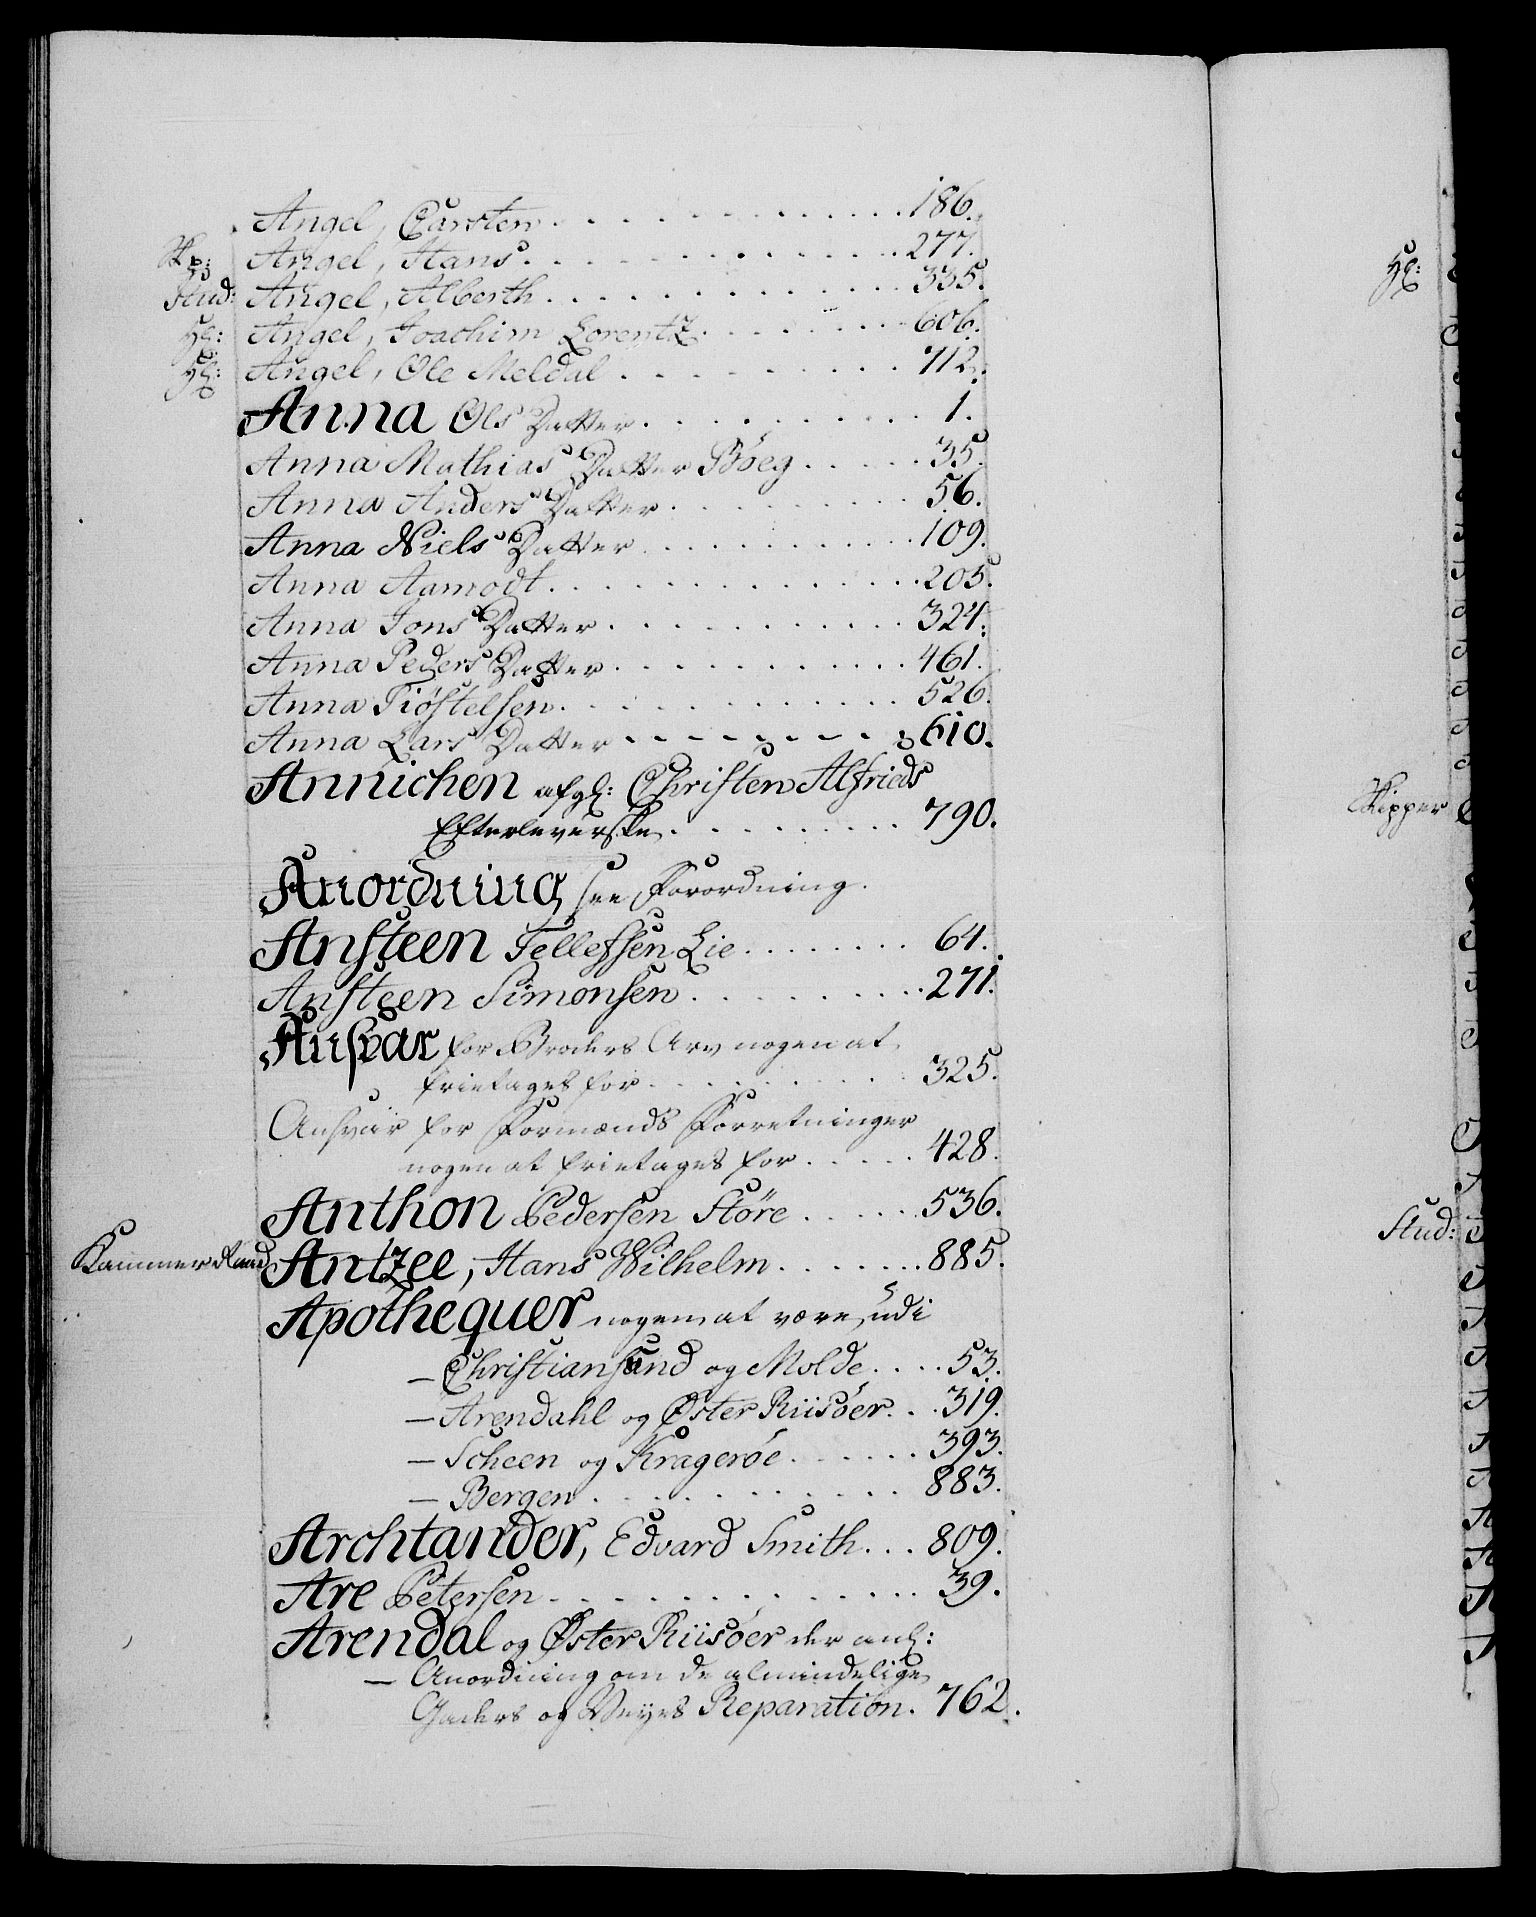 Angel, Carsten . . . . . . . . . . . . 186.
Skp: Angel, Hans . . . . . . . . . . . . 277.
Stud: Angel, Alberth . . . . . . . . . . . . 335.
Angel, Joachim Lorentz . . . . . . . 606.
Angel, Ole Meldal . . . . . . . . . 712.
Anna Ols Datter . . . . . . . . . 1.
Anna Mathias Datter Bóeg . . . . . 35.
Anna Anders Datter . . . . . . . . 56.
Anna Niels Datter . . . . . . . . . . 109.
Anna Aamodt . . . . . . . . . . . . 205.
Anna Jons Datter . . . . . . . . . . . 324.
Anna Peders Datter . . . . . . . . . . 461.
Anna Tióstelsen . . . . . . . . . . . . 526.
Anna Lars Datter . . . . . . . . 610.
Annichen afgl: Christen Alfrieds
Efterleverske . . . . . . . . . 790.
Anordning see Forordning.
Ansteen Tellefsen Lie . . . . . . . . 64.
Ansteen Simonsen . . . . . . . . . 271.
Ansvar for Broders Arv nogen at
frietages for . . . . . . . . . 325.
Ansvar for Formænds Forretninger
nogen at frietages for . . . . . 428.
Anthon Pedersen Störe . . . . . 536.
Kammer Raad Antzee, Hans Wilhelm . . . . . . . 885.
Apothequer nogen at være udi
— Christiansund og Molde . . . . 53.
— Arendahl og Øster Riisóer . . . 319.
— Scheen og Krageróe . . . . . . 393.
— Bergen . . . . . . . . . . . 883.
Archtander, Edvard Smith . . . 809.
Are Petersen . . . . . . . . . . . . 39.
Arendal og Øster Riisóer der anl:
— Anordning om de almindelige
Gaders og Veyes Reparation . 762.
Skipper
Stud: